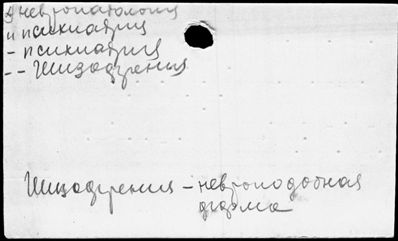 невропатология
и психиатрия
- психиатрия
-- Шизофрения
Шизофрения - неврозоподобная
форма